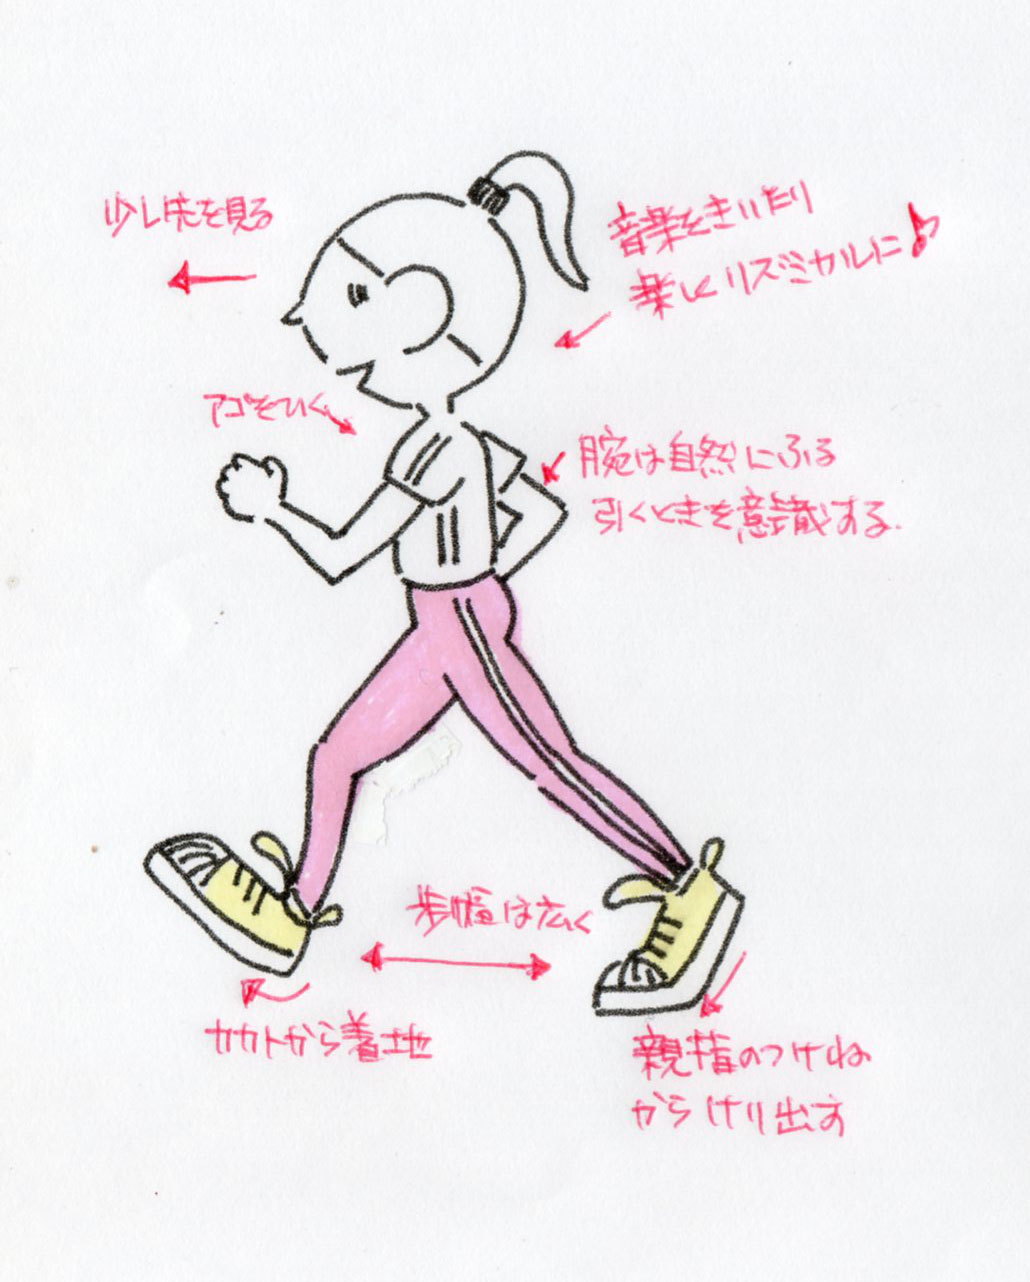 少し先を見る
音楽をきいたり
楽しくリズミカルに♪
アゴをひく
腕は自然にふる
引くときを意識する.
歩幅は広く
カカトから着地
親指のつけね
からけり出す